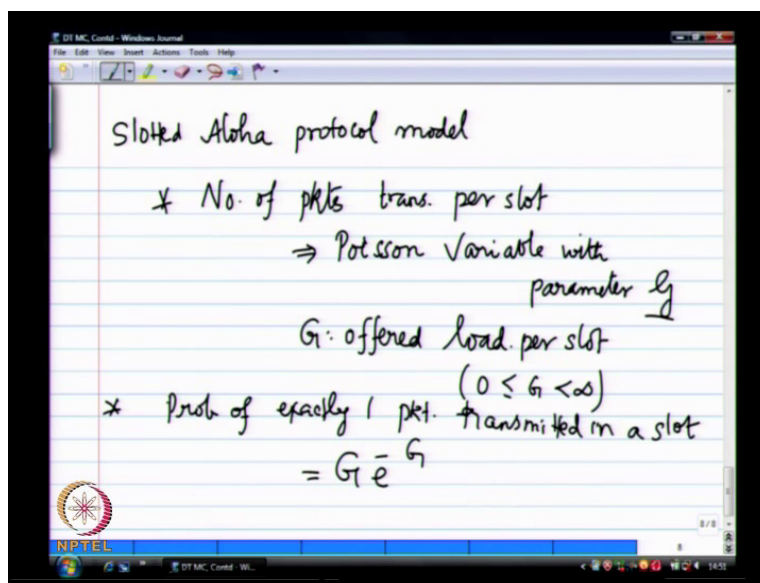 DT MC, Contd - Windows Journal
File Edit View Insert Actions Tools Help
Slotted Aloha protocol model
* No. of pkts trans. per slot
⇒ Poisson Variable with
parameter G
G: offered load per slot
(0 ≤ G < ∞)
* Prob of exactly 1 pkt. transmitted in a slot
= G e^-G
8/8
NPTEL
8
DT MC, Contd - Wi...
14:51